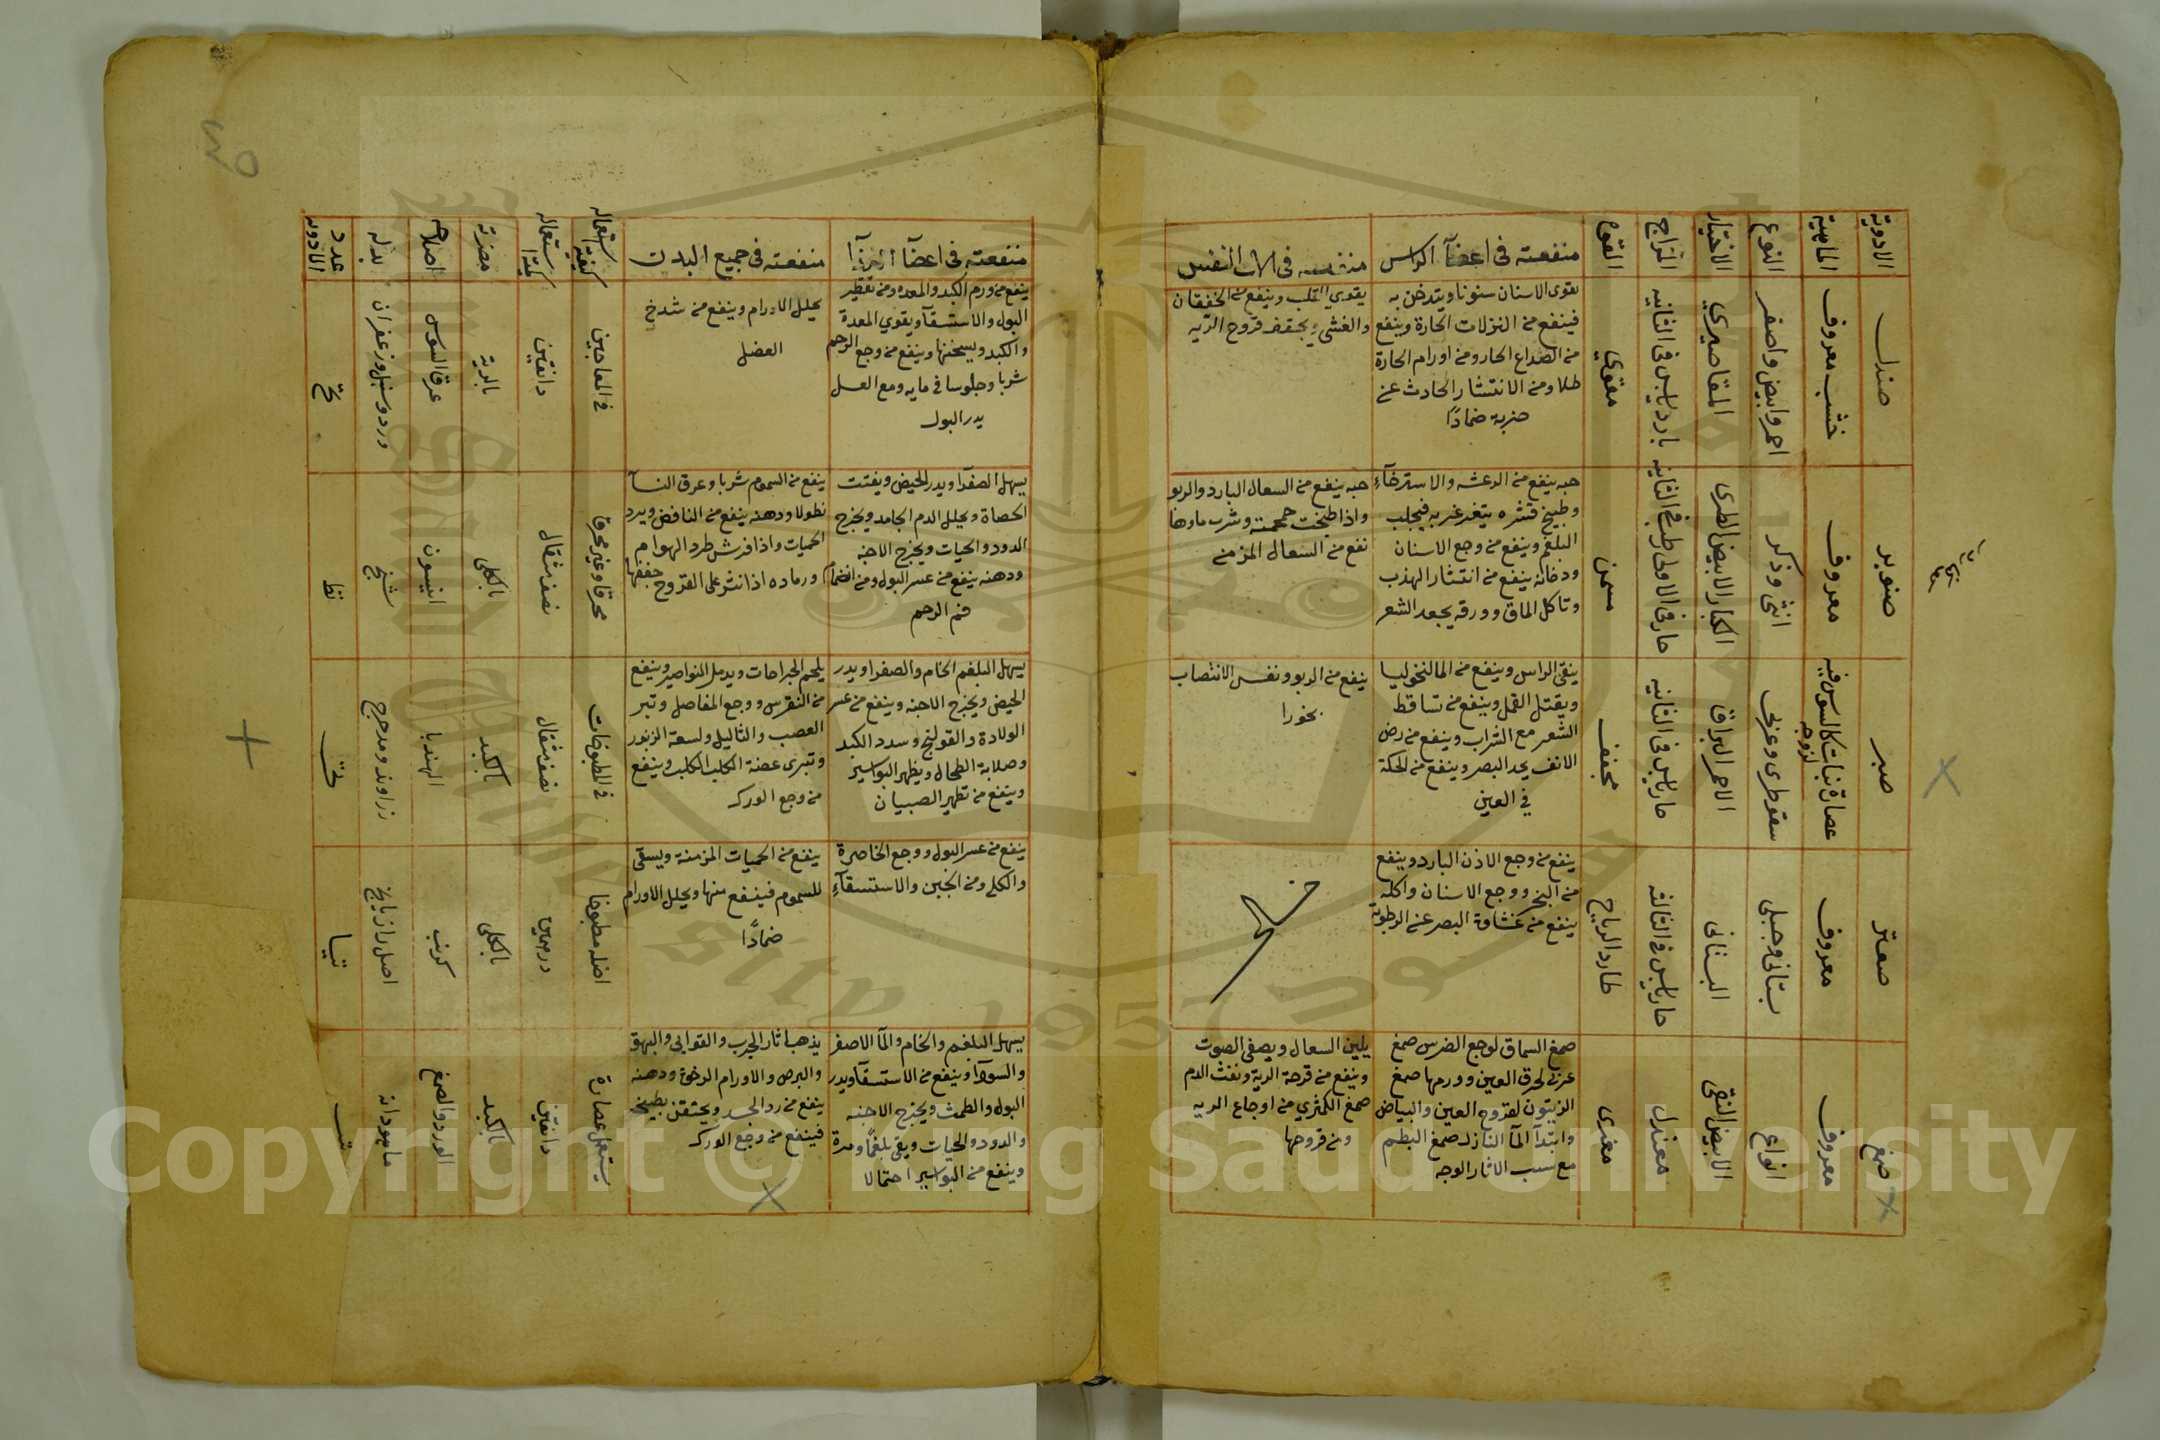 الادوية
الماهية
النوع
الاختيار
المزاج
القوة
منفعته فى اعضآ الراس
منفعته فى الات النفس
صندل
خشب معروف
احمر وابيض واصفر
المقاصيرى
بارد يابس فى الثانية
مقوي
يقوى الاسنان سنونا ويتدخن به
فينفع من النزلات الحارة وينفع
من الصداع الحار ومن اورام الحارة
طلا ومن الانتشار الحادث عن
ضربة ضمادًا
يقوي القلب وينفع من الخفقان
والغشى ويجفف قروح الريه
صنوبر
معروف
انثى وذكر
الكبار الابيض الطرى
حار فى الاولى رطب فى الثانيه
مسمن
حبه ينفع من الرعشه والاسترخآء
وطبيخ قشره يتغرغر به فيجلب
البلغم وينفع من وجع الاسنان
ودخانه ينفع من انتشار الهذب
وتاكل الماق وورقه يجعد الشعر
حبه ينفع من السعال البارد والربو
واذا طبخت جمته وشرب ماوها
نفع من السعال المزمن
صبر
عصارة نبات كالسوس فيه
لزوجه
سقوطرى وعربى
الاحمر البراق
حار يابس فى الثانيه
مجفف
ينقى الراس وينفع من المالنخوليا
ويقتل القمل وينفع من تساقط
الشعر مع الشراب وينفع من رض
الانف يحد البصر وينفع من الحكة
فى العين
ينفع من الربو ونفس الانتصاب
بخورا
صعتر
معروف
بستانى وجبلى
البستانى
حار يابس فى الثالثه
طارد الرياح
ينفع من وجع الاذن البارد وينفع
من البخر ووجع الاسنان واكله
ينفع من غشاوة البصر عن الرطوبة
صمغ
معروف
انواع
الابيض النقى
معتدل
مغرى
صمغ السماق لوجع الضرس صمغ
عربى لحرق العين وورمها صمغ
الزيتون لقروح العين والبياض
وابتدآ المآ النازل صمغ البطم
الاثار الوجه
يلين السعال ويصفى الصوت
وينفع من قرحة الرية ونفث الدم
صمغ الكمثري من اوجاع الريه
ومن قروحها
منفعته فى اعضآ الغذآ
منفعته فى جميع البدن
كيفية استعماله
كمية استعماله
مضرته
اصلاحه
بدله
عدد الادويه
ينفع من ورم الكبد والمعده ومن تقطير
البول والاستسقآ ويقوي المعدة
والكبد ويسخنها وينفع من وجع الرحم
شربا وجلوسا فى مايه ومع العسل
يدر البول
يحلل الاورام وينفع من شدخ
العضل
فى المعاجين
دانقين
بالرية
عرق السوس
ورد وسنبل وزعفران
يسهل الصفرآ ويدر الحيض ويفتت
الحصاة ويحلل الدم الجامد ويخرج
الدود والحيات ويخرج الاجنه
ودهنه ينفع من عسر البول ومن انضمام
فم الرحم
ينفع من السموم شربا وعرق النسآ
نطولا ودهنه ينفع من النافض ويرد
الحميات واذا فرش طرد الهوام
ورماده اذا نثر على القروح جففها
محرقا وغير محرق
نصف مثقال
بالكلى
انيسون
شيح
يسهل البلغم الخام والصفرا ويدر
الحيض ويخرج الاجنه وينفع من عسر
الولادة والقولنج وسدد الكبد
وصلابة الطحال ويظهر البواسير
وينفع من تطهير الصبيان
يلحم الجراحات ويدمل النواصير وينفع
من النقرس ووجع المفاصل وتبر
العصب والثاليل ولسعة الزنبور
وتبرى عضة الكلب الكلب وينفع
من وجع الورك
فى المطبوخات
نصف مثقال
بالكبد
الهندبا
زراوند ومدحرج
ينفع من عسر البول ووجع الخاصرة
والكلى ومن الجبن والاستسقآء
ينفع من الحميات المزمنة ويسقى
للسموم فينفع منها ويحلل الاورام
ضمادًا
اصله مطبوخا
درهمين
بالكلى
كرنب
اصل رازيانج
تيا
يسهل البلغم والخام والمآ الاصفر
والسودآ وينفع من الاستسقآ ويدر
البول والطمث ويخرج الاجنه
والدود والحيات ويقى بلغمًا ومرة
وينفع من البواسير احتمالا
يذهب اثار الجرب والقوابى والبهق
والبرص والاورام الرخوة ودهنه
ينفع من رد الجسد ويحتقن بطبيخه
فينفع من وجع الورك
يستعمل عصارة
دانقين
بالكبد
الورد والصمغ
ماهودانه
Copyright © King Saud University